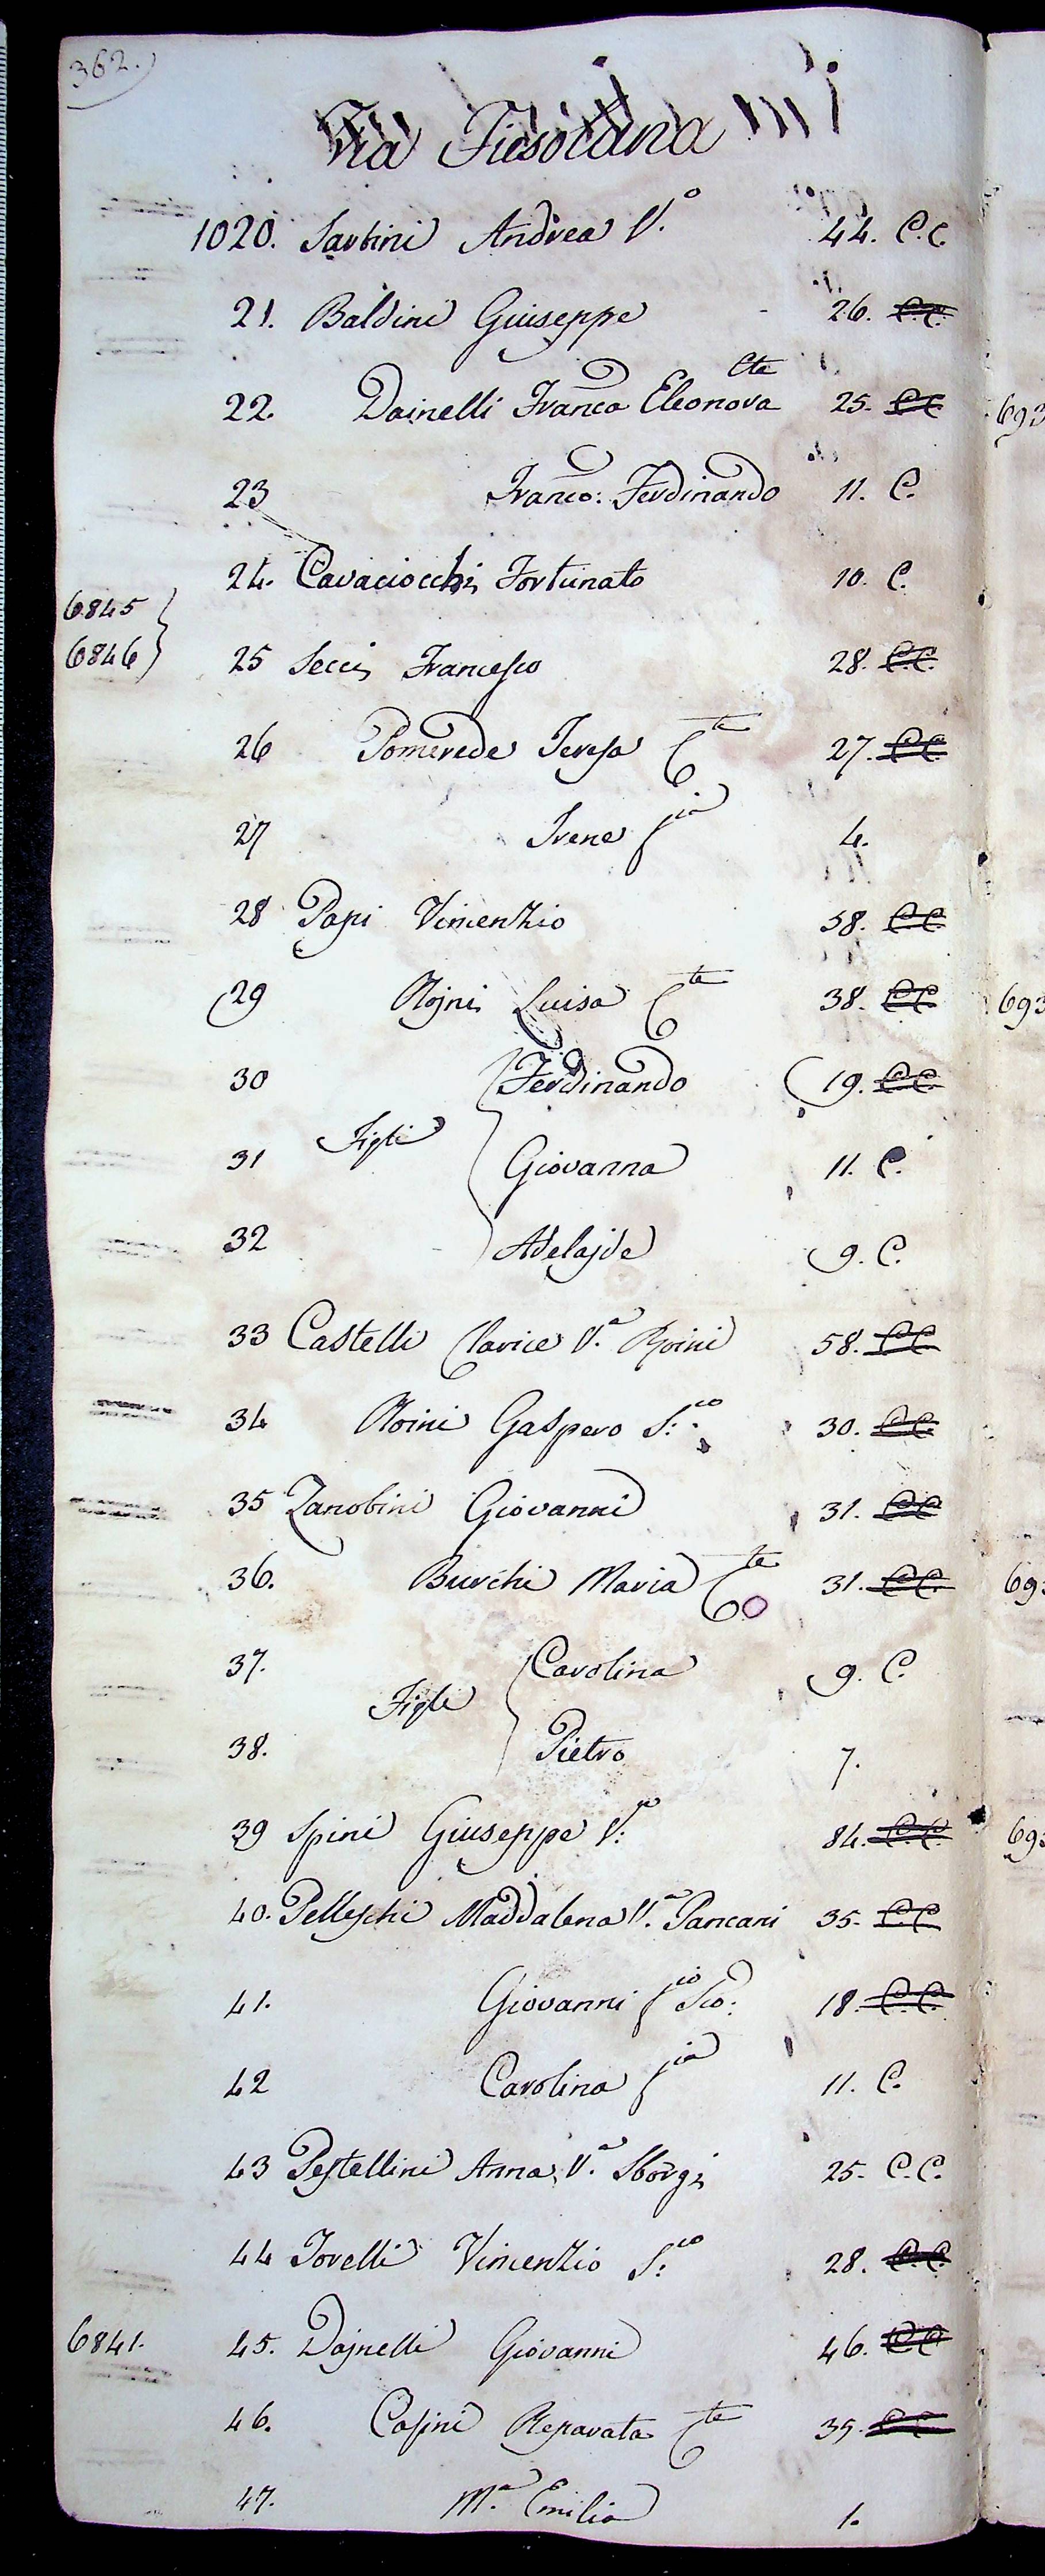 362.
Via Fiesolana
1020. Sartini Andrea V.o 44. C.C.
21. Baldini Giuseppe 26. C.C.
22. Dainelli Franca Eleonora Cte 25. C.C.
23 Franco: Ferdinando 11. C.
24. Cavaciocchi Fortunato 10. C.
6845
6846
25 Secci Francesco 28. C.C.
26 Pomerede Teresa Cte 27. C.C.
27 Irene fia 4.
28 Papi Vincenzio 58. C.C.
29 Luisa Cte 38. C.C.
30 Ferdinando 19. C.C.
Figli
31 Giovanna 11. C.
32 Adelajde 9. C.
33 Castelli Clarice V.a 58. C.C.
34 Gaspero S.co 30. C.C.
35 Zanobini Giovanni 31. C.C.
36. Burchi Maria Cte 31. C.C.
37. Carolina 9. C.
Figli
38. Pietro 7.
39 Spini Giuseppe V.o 84. C.C.
40. Pelleschi Maddalena V.a Pancani 35. C.C.
41. Giovanni fio Sco: 18. C.C.
42 Carolina fia 11. C.
43 Pestellini Anna V.a Sborgi 25. C.C.
44 Torelli Vincenzio S.co 28. C.C.
6841. 45. Dajnelli Giovanni 46. C.C.
46. Casini Reparata Cte 39. C.C.
47. M.a Emilia 1.